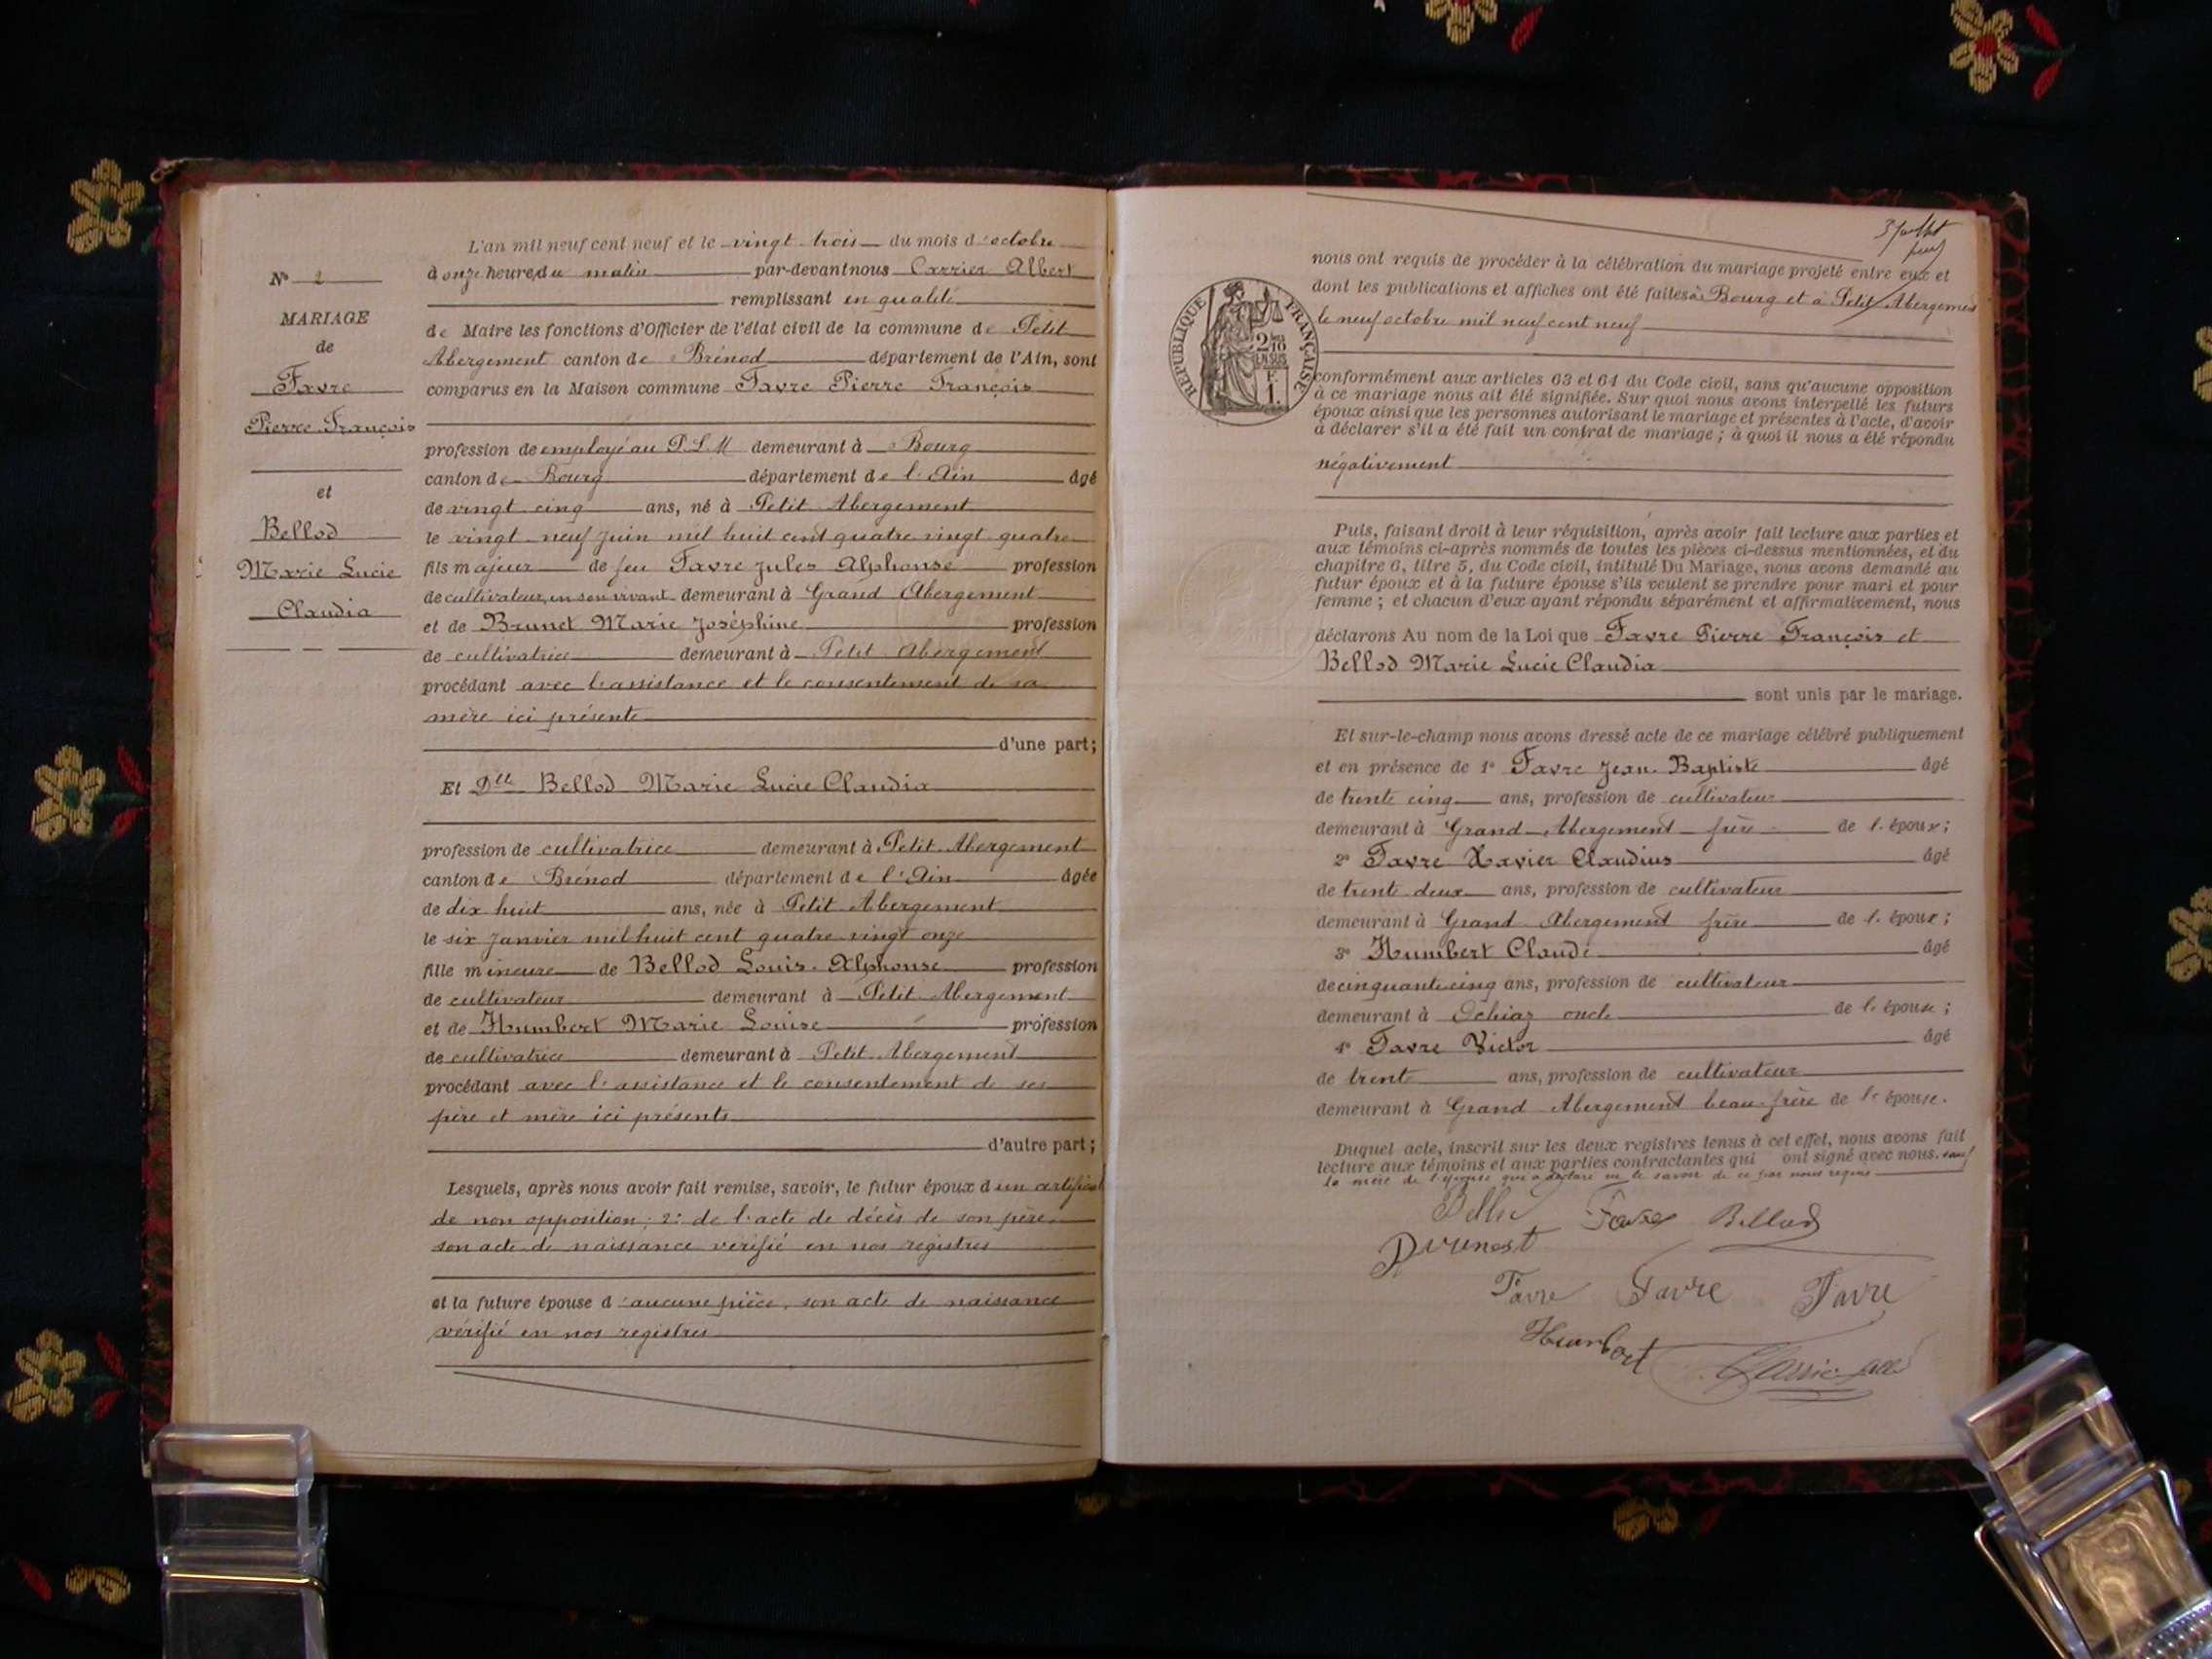 L'an mil neuf cent neuf et le vingt trois du mois d'octobre
à onze heures du matin par-devant nous Carrier Albert
remplissant en qualité
de Maire les fonctions d'Officier de l'état civil de la commune de Petit
Abergement canton de Brénod département de l'Ain, sont
comparus en la Maison commune Favre Pierre François
profession de employé au P.L.M demeurant à Bourg
canton de Bourg département de l'Ain âgé
de vingt cinq ans, né à Petit Abergement
le vingt neuf juin mil huit cent quatre vingt quatre
fils majeur de feu Favre Jules Alphonse profession
de cultivateur en son vivant demeurant à Grand Abergement
et de Brunet Marie Joséphine profession
de cultivatrice demeurant à Petit Abergement
procédant avec l'assistance et le consentement de sa
mère ici présente
d'une part;
Et Dlle Bellod Marie Lucie Claudia
profession de cultivatrice demeurant à Petit Abergement
canton de Brénod département de l'Ain âgée
de dix huit ans, née à Petit Abergement
le six Janvier mil huit cent quatre vingt onze
fille mineure de Bellod Louis Alphonse profession
de cultivateur demeurant à Petit Abergement
et de Humbert Marie Louise profession
de cultivatrice demeurant à Petit Abergement
procédant avec l'assistance et le consentement de ses
père et mère ici présents
d'autre part;
Lesquels, après nous avoir fait remise, savoir, le futur époux d'un certificat
de non opposition; 2: de l'acte de décès de son père
son acte de naissance vérifié en nos registres
et la future épouse d'aucune pièce, son acte de naissance
vérifié en nos registres
No 2
MARIAGE
de
Favre
Pierre François
et
Bellod
Marie Lucie
Claudia
nous ont requis de procéder à la célébration du mariage projeté entre eux et
dont les publications et affiches ont été faites à Bourg et à Petit Abergement
le neuf octobre mil neuf cent neuf
conformément aux articles 63 et 64 du Code civil, sans qu'aucune opposition
à ce mariage nous ait été signifiée. Sur quoi nous avons interpellé les futurs
époux ainsi que les personnes autorisant le mariage et présentes à l'acte, d'avoir
à déclarer s'il a été fait un contrat de mariage; à quoi il nous a été répondu
négativement
Puis, faisant droit à leur réquisition, après avoir fait lecture aux parties et
aux témoins ci-après nommés de toutes les pièces ci-dessus mentionnées, et du
chapitre 6, titre 5, du Code civil, intitulé Du Mariage, nous avons demandé au
futur époux et à la future épouse s'ils veulent se prendre pour mari et pour
femme; et chacun d'eux ayant répondu séparément et affirmativement, nous
déclarons Au nom de la Loi que Favre Pierre François et
Bellod Marie Lucie Claudia
sont unis par le mariage.
Et sur-le-champ nous avons dressé acte de ce mariage célébré publiquement
et en présence de 1o Favre Jean Baptiste âgé
de trente cinq ans, profession de cultivateur
demeurant à Grand Abergement frère de l'époux;
2o Favre Xavier Claudius âgé
de trente deux ans, profession de cultivateur
demeurant à Grand Abergement frère de l'époux;
3o Humbert Claude âgé
de cinquante cinq ans, profession de cultivateur
demeurant à oncle de l'épouse;
4o Favre Victor âgé
de trente ans, profession de cultivateur
demeurant à Grand Abergement beau-frère de l'épouse.
Duquel acte, inscrit sur les deux registres tenus à cet effet, nous avons fait
lecture aux témoins et aux parties contractantes qui ont signé avec nous. sauf
la mère de l'épouse qui a déclaré ne le savoir de ce par nous requise
Favre Bellod
Favre Favre Favre
Humbert
RÉPUBLIQUE FRANÇAISE
2/10
EN SUS
F.
1.